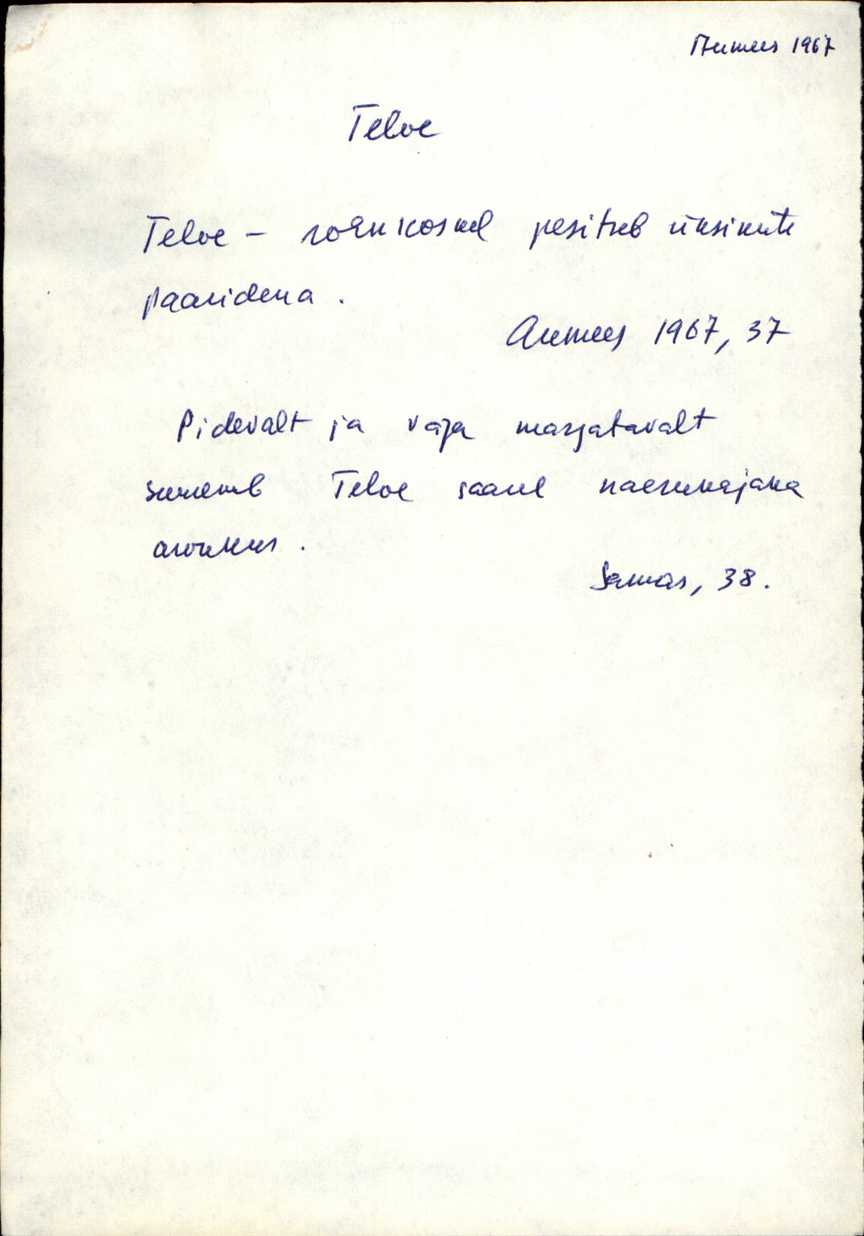 Aumees 1967
Telve
Telve – rohukoskel pesitseb üksikute
paaridena.
Aumees 1967, 37
Pidevalt ja väga märgatavalt
suureneb Telve saarel naerukajaka
arvukus.
Samas, 38.